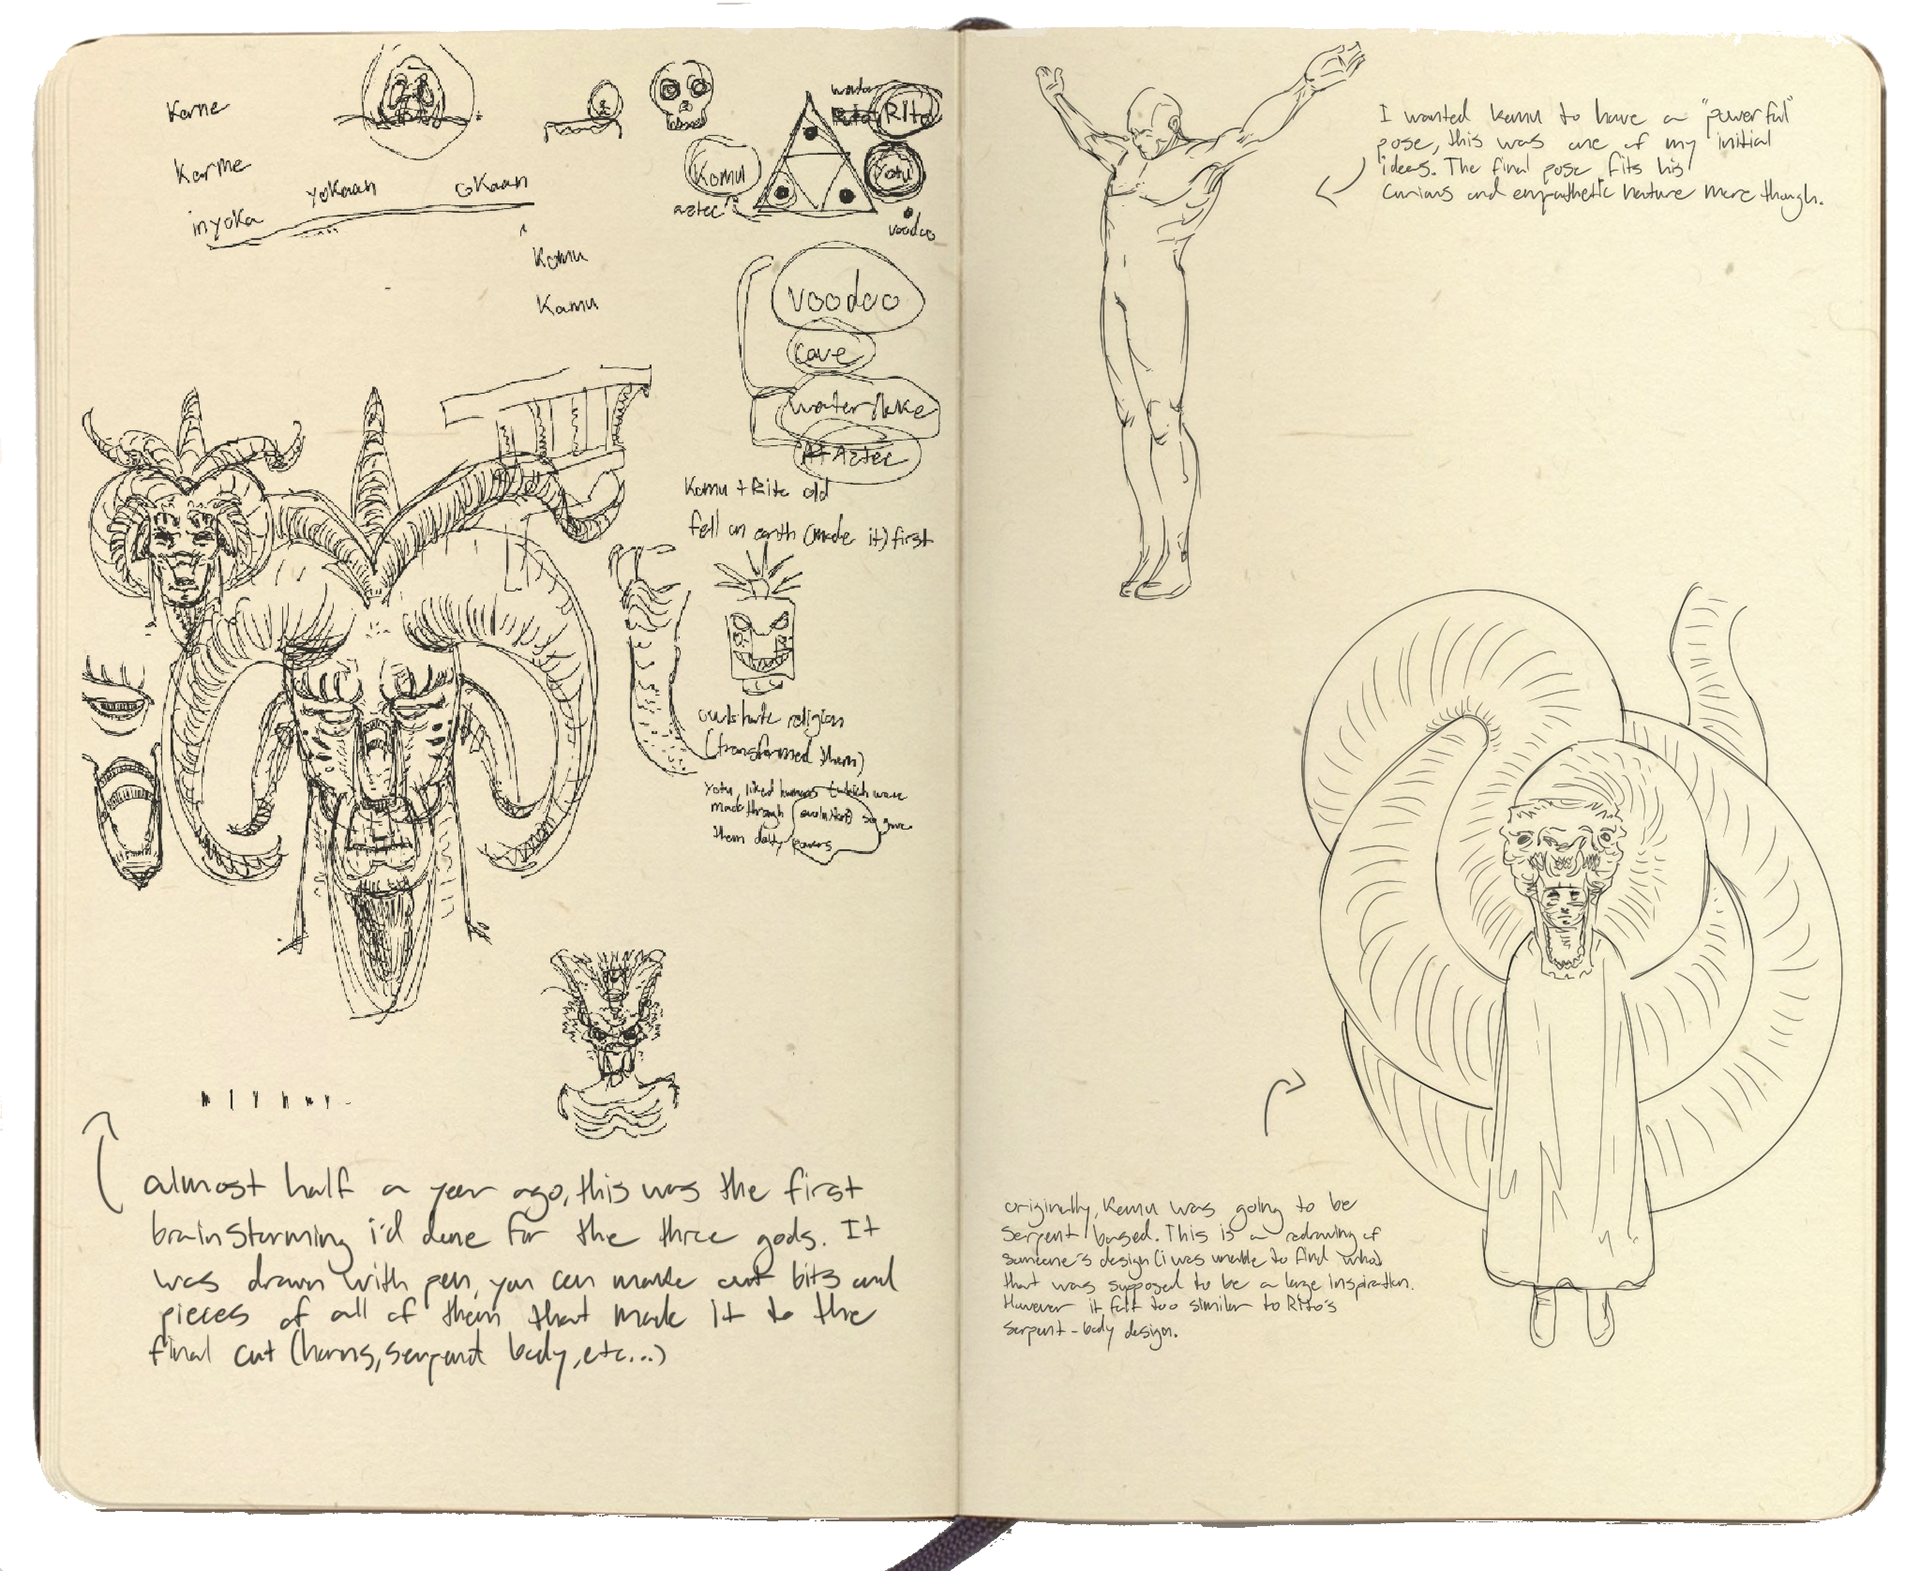 Karne
Karme
inyoka
yoKaan
GKaan
Komu
Kamu
water
Rito
Komu
Yotu
aztec
voodoo
voodoo
Cave
water/lake
Aztec
Komu + Rito old
fell on earth (made it) first
religion
(transformed them)
Yotu, liked humans (which were
made through (evolution) so gave
them deity powers
almost half a year ago, this was the first
brainstorming i'd done for the three gods. It
was drawn with pen, you can make out bits and
pieces of all of them that made it to the
final cut (horns, serpent body, etc...)
I wanted Kemu to have a "powerful"
pose, this was one of my initial
ideas. The final pose fits his
curious and empathetic nature more though.
originally, Kemu was going to be
serpent based. This is a redrawing of
someone's design (i was unable to find who)
that was supposed to be a large inspiration.
However it felt too similar to Rito's
serpent-body design.